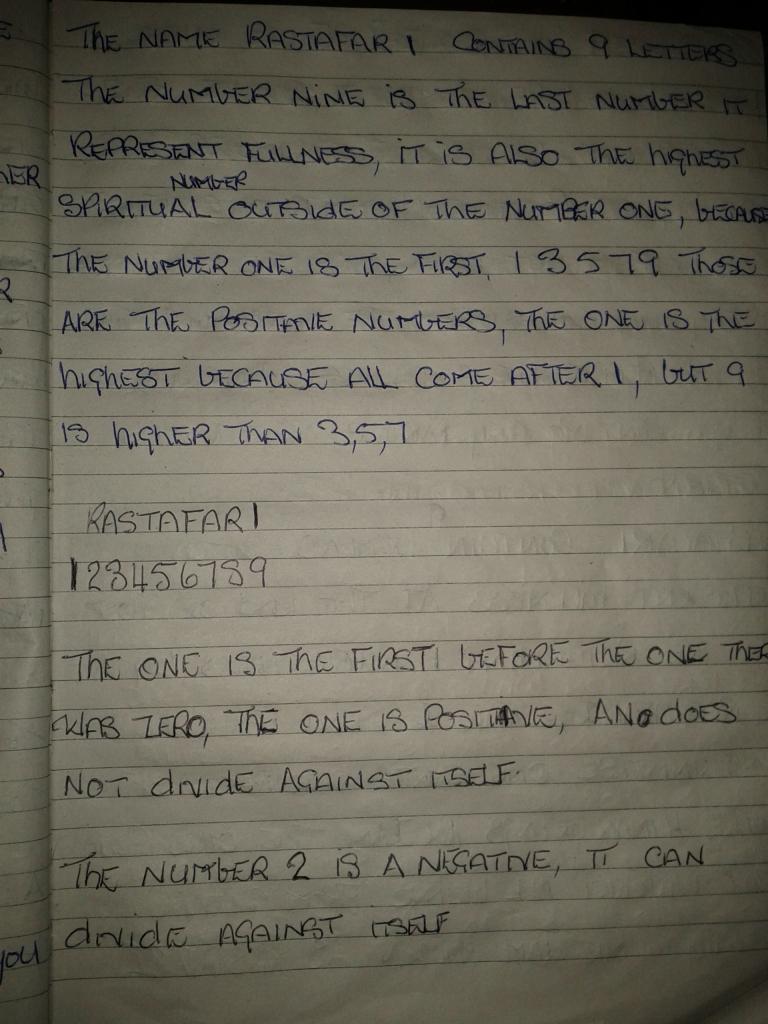 THE NAME RASTAFARI CONTAINS 9 LETTERS
THE NUMBER NINE IS THE LAST NUMBER IT
REPRESENT FULLNESS, IT IS ALSO THE HIGHEST
NUMBER
SPIRITUAL OUTSIDE OF THE NUMBER ONE, BECAUSE
THE NUMBER ONE IS THE FIRST, 1 3 5 7 9 THOSE
ARE THE POSITIVE NUMBERS, THE ONE IS THE
HIGHEST BECAUSE ALL COME AFTER 1, BUT 9
IS HIGHER THAN 3,5,7
RASTAFARI
123456789
THE ONE IS THE FIRST BEFORE THE ONE THER
WAS ZERO, THE ONE IS POSITIVE, AND DOES
NOT DIVIDE AGAINST ITSELF.
THE NUMBER 2 IS A NEGATIVE, IT CAN
DIVIDE AGAINST ITSELF
YOU